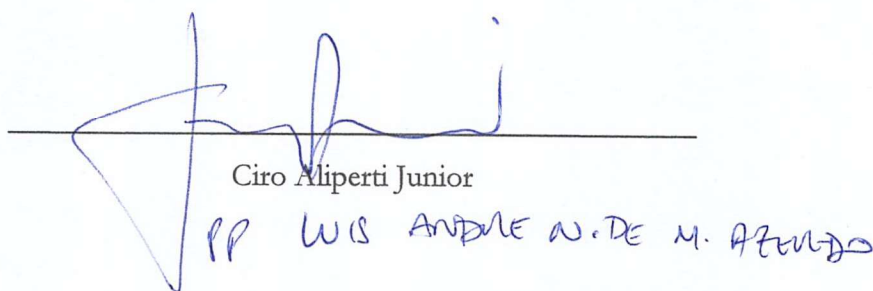 Ciro Aliperti Junior
PP LUIS ANDRE N. DE M. AZEVEDO